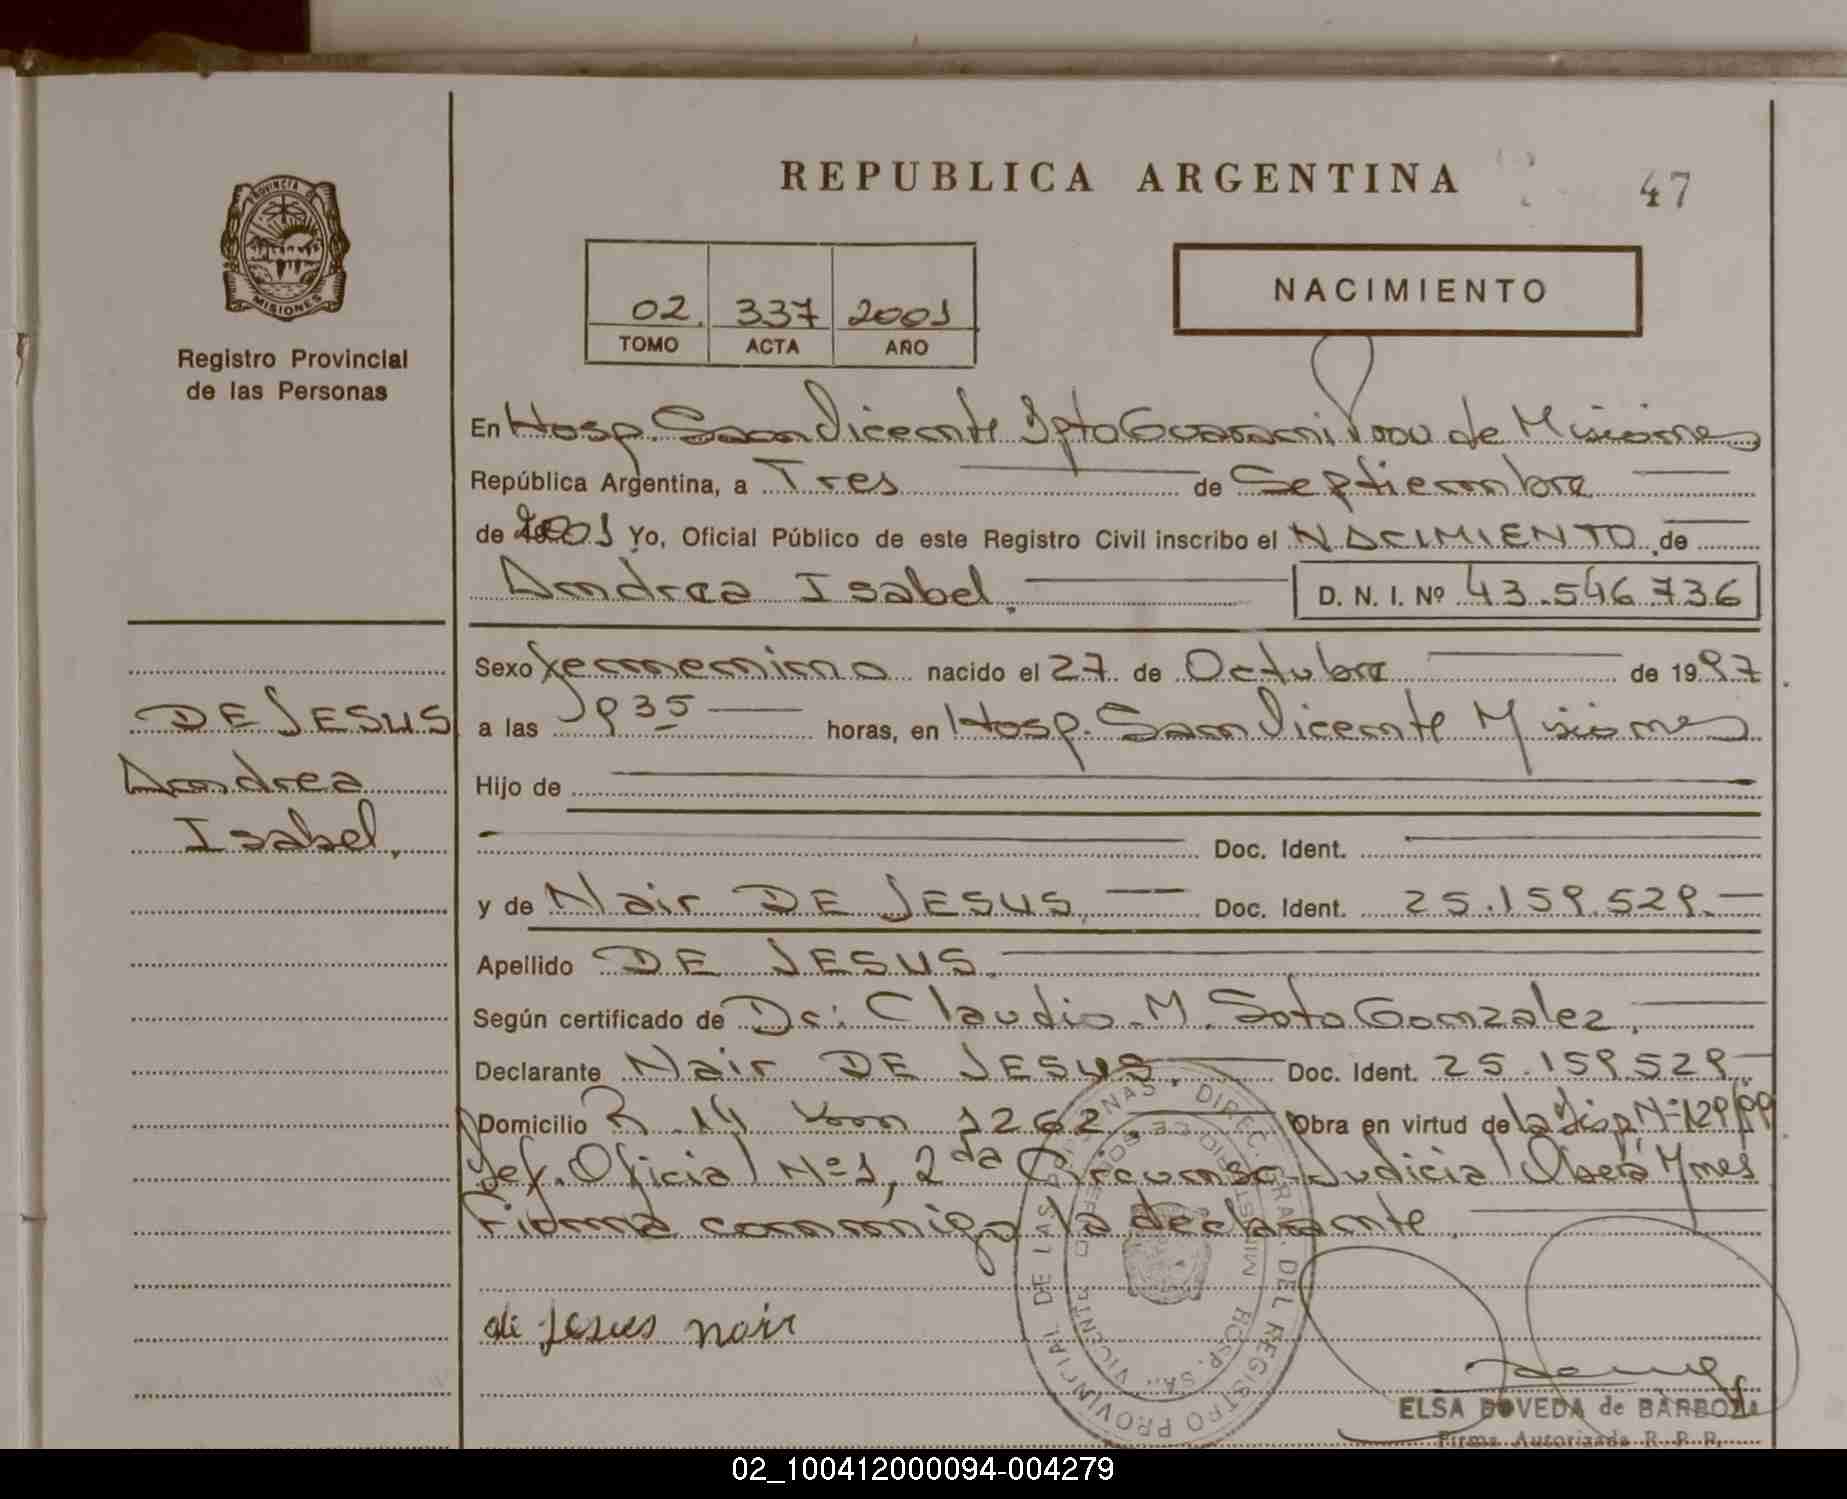 REPUBLICA ARGENTINA
47
PROVINCIA
MISIONES
Registro Provincial
de las Personas
02. 337 2001
TOMO ACTA AÑO
NACIMIENTO
En Hosp. San Vicente Dpto Guarani Prov de Misiones
República Argentina, a Tres de Septiembre
de 2001 Yo, Oficial Público de este Registro Civil inscribo el NACIMIENTO de
Andrea Isabel. D. N. I. Nº 43.546.736
Sexo femenino nacido el 27 de Octubre de 1997
a las 9 35 horas, en Hosp. San Vicente Misiones
Hijo de
Doc. Ident.
y de Nair DE JESUS. Doc. Ident. 25.159.529.
Apellido DE JESUS.
Según certificado de Dr: Claudio. M. Soto Gonzalez.
Declarante Nair DE JESUS. Doc. Ident. 25.159.529.
Domicilio R. 14 Km 1262. Obra en virtud de la Disp Nº 129/99
Def. Oficial Nº 1, 2da Circunsc. Judicial Oberá Mnes
Firma conmigo la declarante.
de jesus nair
DE JESUS
Andrea
Isabel.
DIREC. GRAL. DEL REGISTRO PROVINCIAL DE LAS PERSONAS
MINISTERIO DE GOBIERNO
HOSP. SA. VICENTE
ELSA BOVEDA de BARBOZA
Firma Autorizada R. P. P.
02_100412000094-004279